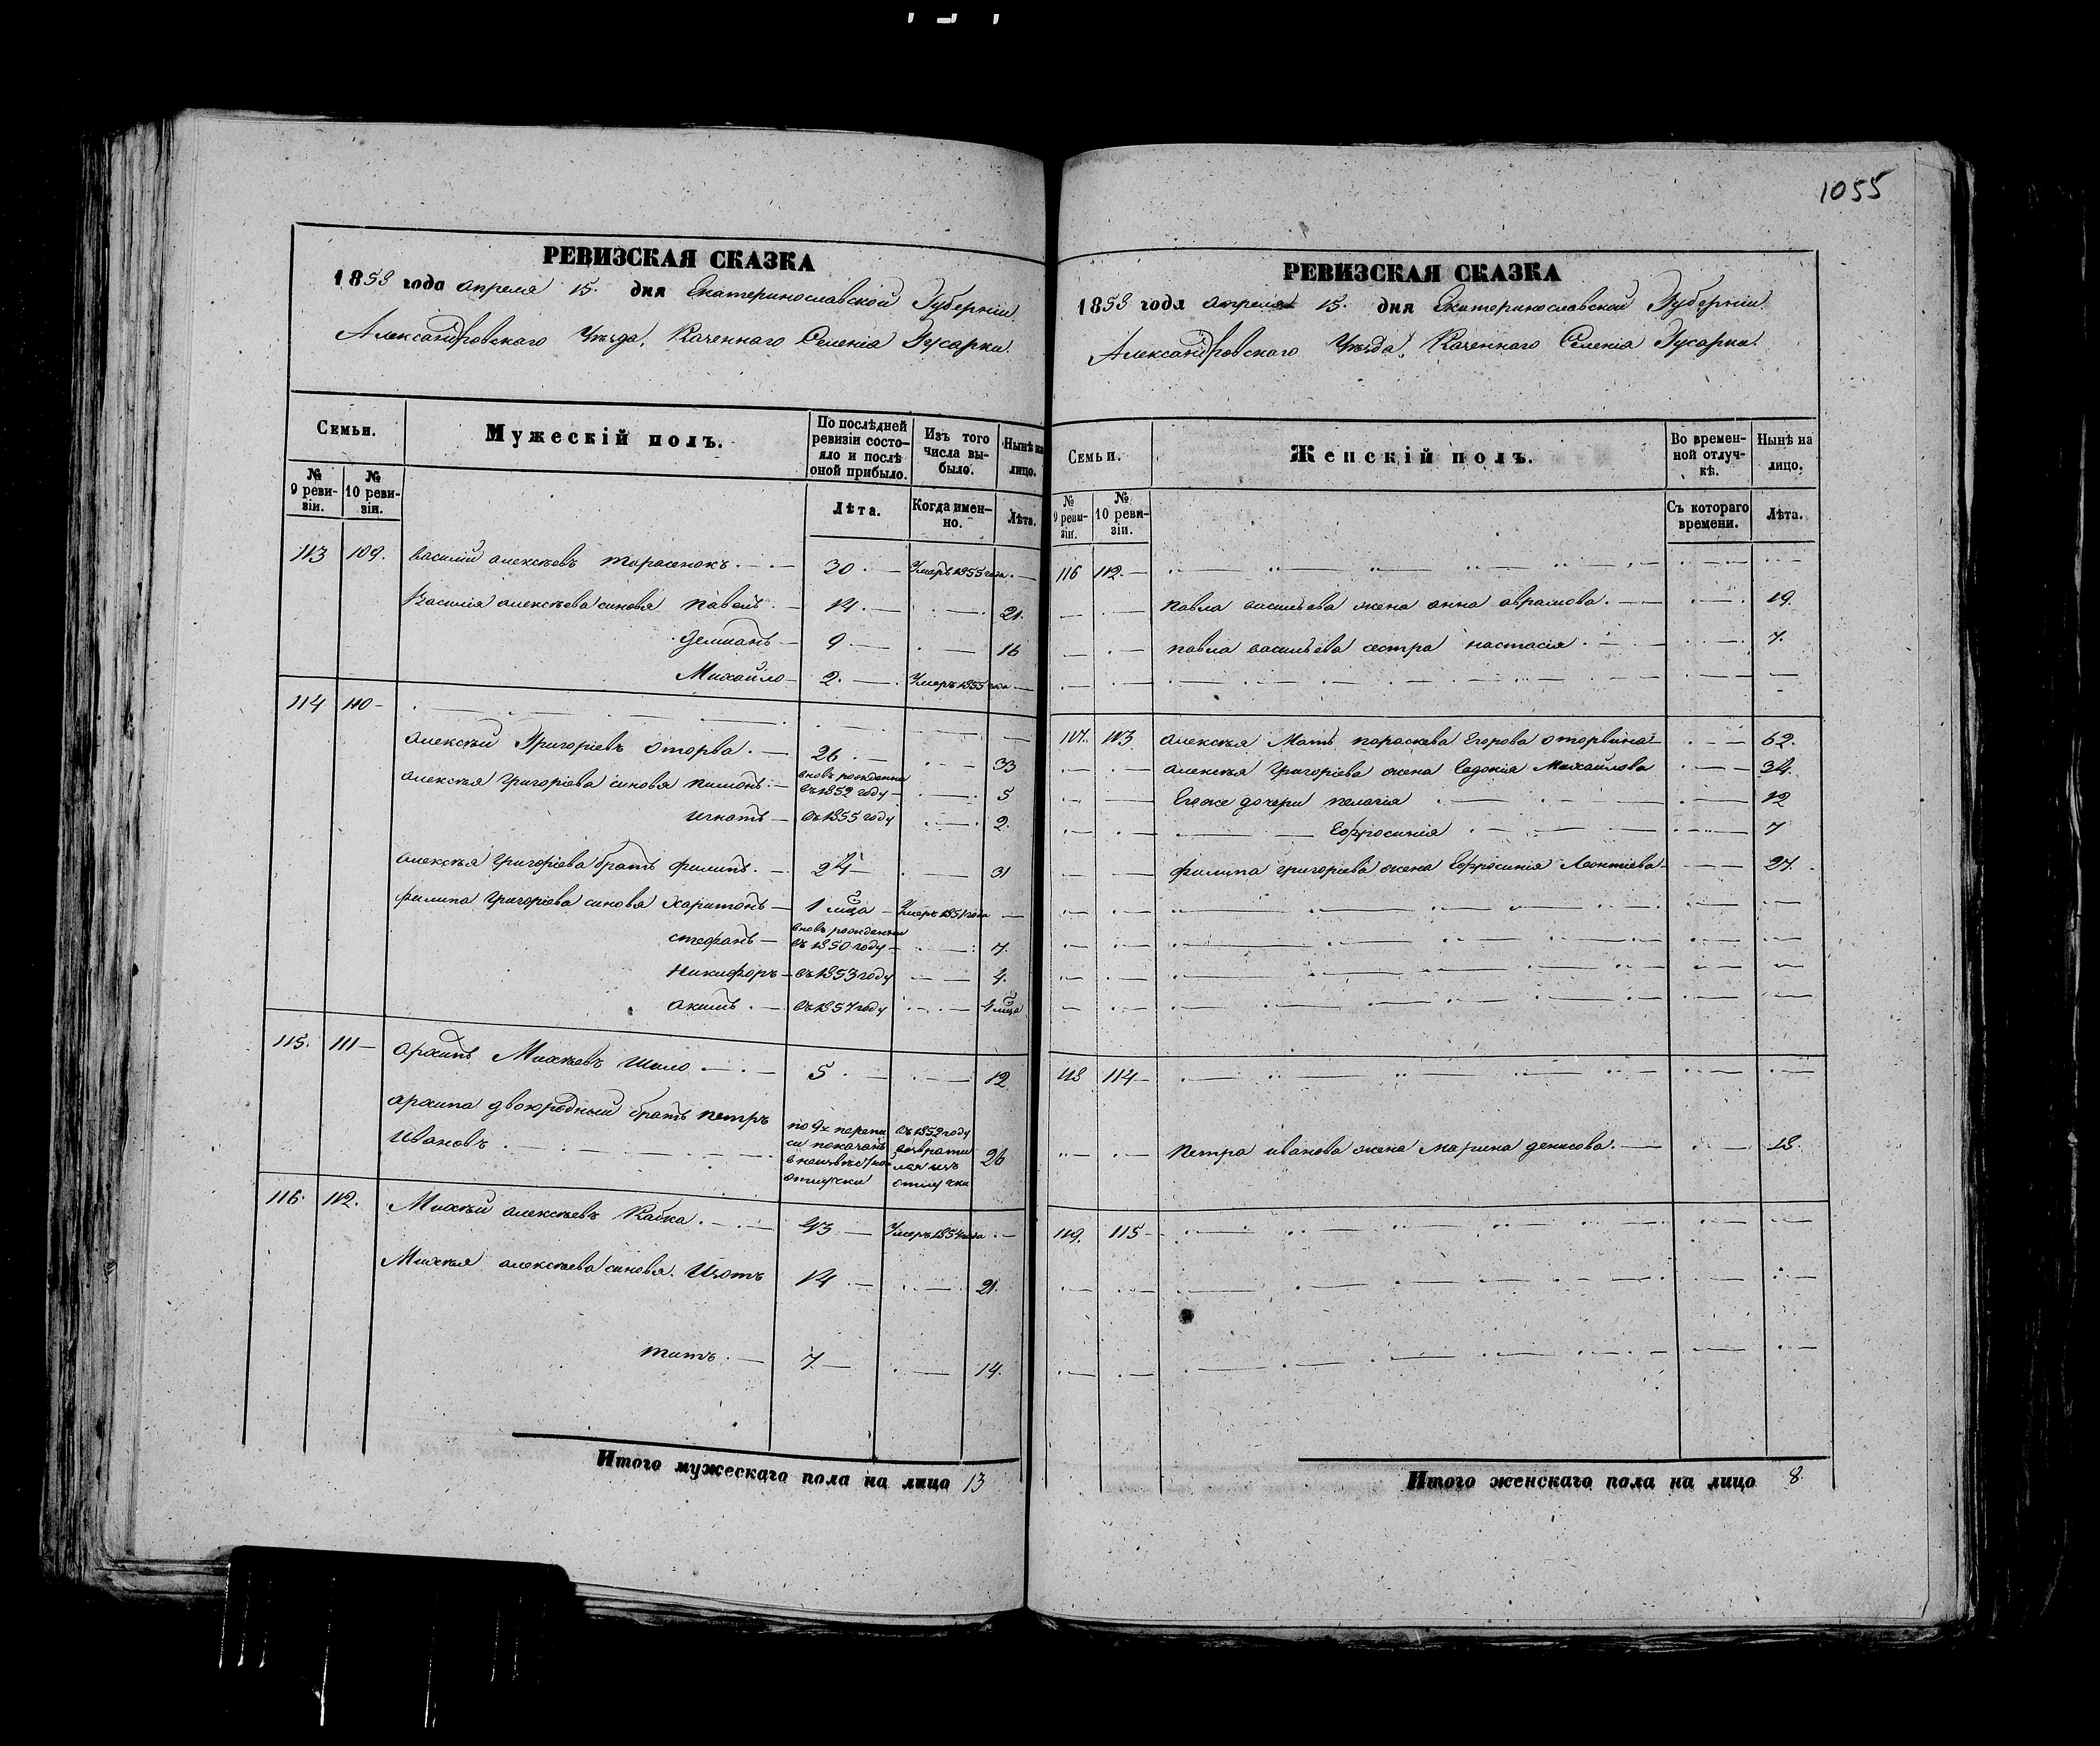 1055
РЕВИЗСКАЯ СКАЗКА
1858 года апреля 15. дня Екатеринославской Губерніи
Александровскаго Уѣзда, Казеннаго Селенія Гусарки.
Семьи.
Мужескій полъ.
По послѣдней ревизіи состояло и послѣ оной прибыло.
Изъ того числа выбыло.
Нынѣ на лицо.
№ 9 ревизіи.
№ 10 ревизіи.
Лѣта.
Когда именно.
Лѣта.
113 109. Василій алексѣевъ тарасенокъ 30 Умеръ 1855 года
Василія алексѣева синовя павелъ 14 21.
демианъ 9 16
Михайло 2. Умеръ 1855 года
114 110
Алексѣй Григоріевъ оторва 26 33
алексѣя григоріева синовя пимонъ вновь рожденни въ 1852 году 5
игнатъ въ 1855 году 2.
алексѣя григоріева братъ филипъ 24 31
филипа григоріева синовя Харитонъ 1 мца Умеръ 1851 года
стефанъ вновь рожденни въ 1850 году 7.
Никифоръ въ 1853 году 4.
акимъ въ 1857 году 4 мца
115. 111 архипъ Михѣевъ шило 5 12
архипа двоюродный братъ петръ
ивановъ по 9й переписи показанъ в неизвѣстной отлучки въ 1852 году возвратился изъ отлучки 26
116. 112. Михѣй алексѣевъ Кабка 43 Умеръ 1854 года
Михѣя алексѣева синовя. Изотъ 14 21.
титъ 7 14.
Итого мужескаго пола на лицо 13
РЕВИЗСКАЯ СКАЗКА
1858 года апреля 15. дня Екатеринославской Губерніи.
Александровскаго Уѣзда, Казеннаго Селенія Гусарки.
Семьи.
Женскій полъ.
Во временной отлучкѣ.
Нынѣ на лицо.
№ 9 ревизіи.
№ 10 ревизіи.
Съ котораго времени.
Лѣта.
116 112.
павла васильева жена анна аврамова 19.
павла васильева сестра настасія 7.
117. 113 алексѣя Мать параскева Егорова оторвина 62.
алексѣя григоріева жена Евдокія Михайлова 34.
Егоже дочери пелагія 12
Ефросинія 7
филипа григоріева жена Ефросинія Леонтіева 27.
118 114
петра иванова жена марина денисова 18.
119. 115
Итого женскаго пола на лицо 8.